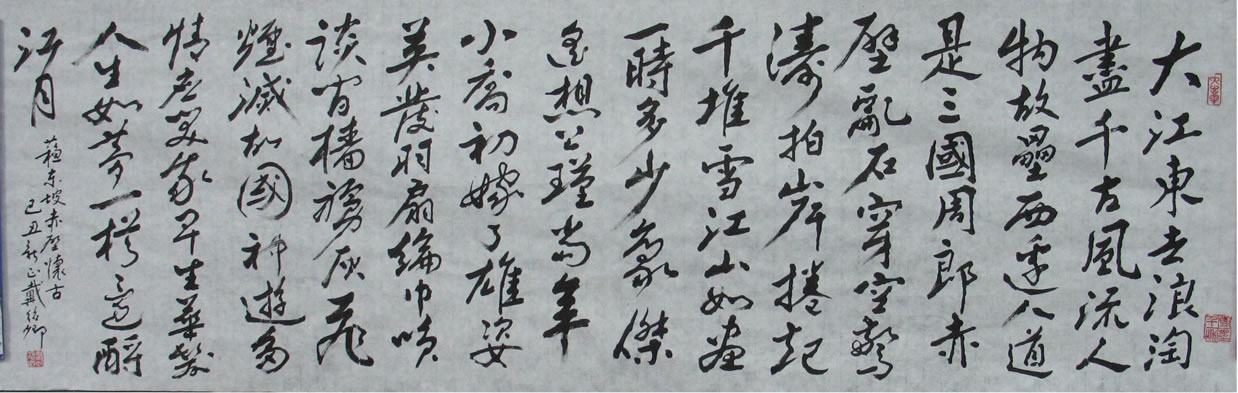 大江東去浪淘
盡千古風流人
物故壘西邊人道
是三國周郎赤
壁亂石穿空驚
濤拍岸捲起
千堆雪江山如畫
一時多少豪傑
遙想公瑾當年
小喬初嫁了雄姿
英發羽扇綸巾咲
談間檣擄灰飛
煙滅故國神遊多
情應笑我早生華髮
人生如夢一樽還酹
江月
蘇東坡赤壁懷古
己丑秋正戴紹卿